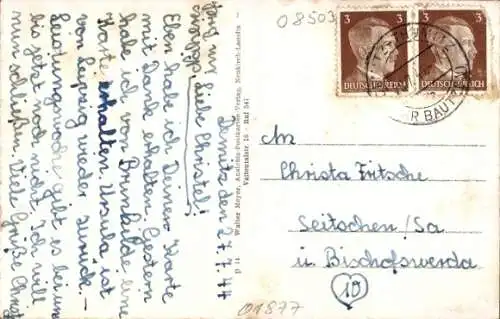 08503
3 3
DEUTSCHES REICH
R BAUTZEN
Demitz den 27.7.44
Liebe Christel!
Eben habe ich Deine Karte
mit Dank erhalten. Gestern
habe ich von Brunhilde eine
Karte erhalten. Ursula ist
von Leipzig wieder zurück.
Leistungswoche gibt es bei uns
bis jetzt noch nicht. Ich will
nun schließen. Viele Grüße
Walter Meyer, Ansichts-Postkarten-Verlag, Neukirch-Lausitz
Ruf 341
An
Christa Fritsche
Seitschen/Sa
ü. Bischofswerda
10
01877